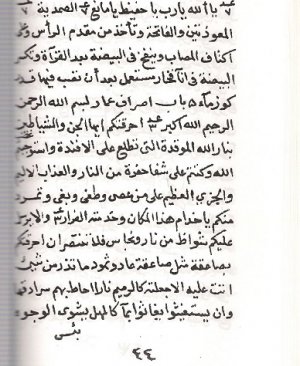 يا الله يا رب يا حفيظ يا مانع الصمدية
المعوذتين والفاتحة وتأخذ من مقدم الرأس و
اكتاف المصاب وبنخ في البيضة بعد القرآة وتكسر
البيضة في انآ فخار مستعمل بعد أن نقب فيها قد
كوز مآء ٥ باب اصراف عمار بسم الله الرحمن
الرحيم الله اكبر احرقتكم ايها الجن والشياطين
بنار الله الموقدة التي تطلع على الافئدة واستوجبتم
الله وكنتم على شفا حفرة من النار والعذاب الاليم
والخزي العظيم على من عصى وطغى وبغى وتمرد
منكم يا خدام هذا المكان وخدمته الفرار والا يرسل
عليكم شواظ من نار ونحاس فلا تنتصران احرقتكم
بصاعقة مثل صاعقة عاد وثمود ما تذر من شيئ
اتت عليه الا جعلته كالرميم نارا احاط بهم سرادقها
وان يستغيثوا يغاثوا بمآ كالمهل يشوى الوجوه
بئس
٤٤